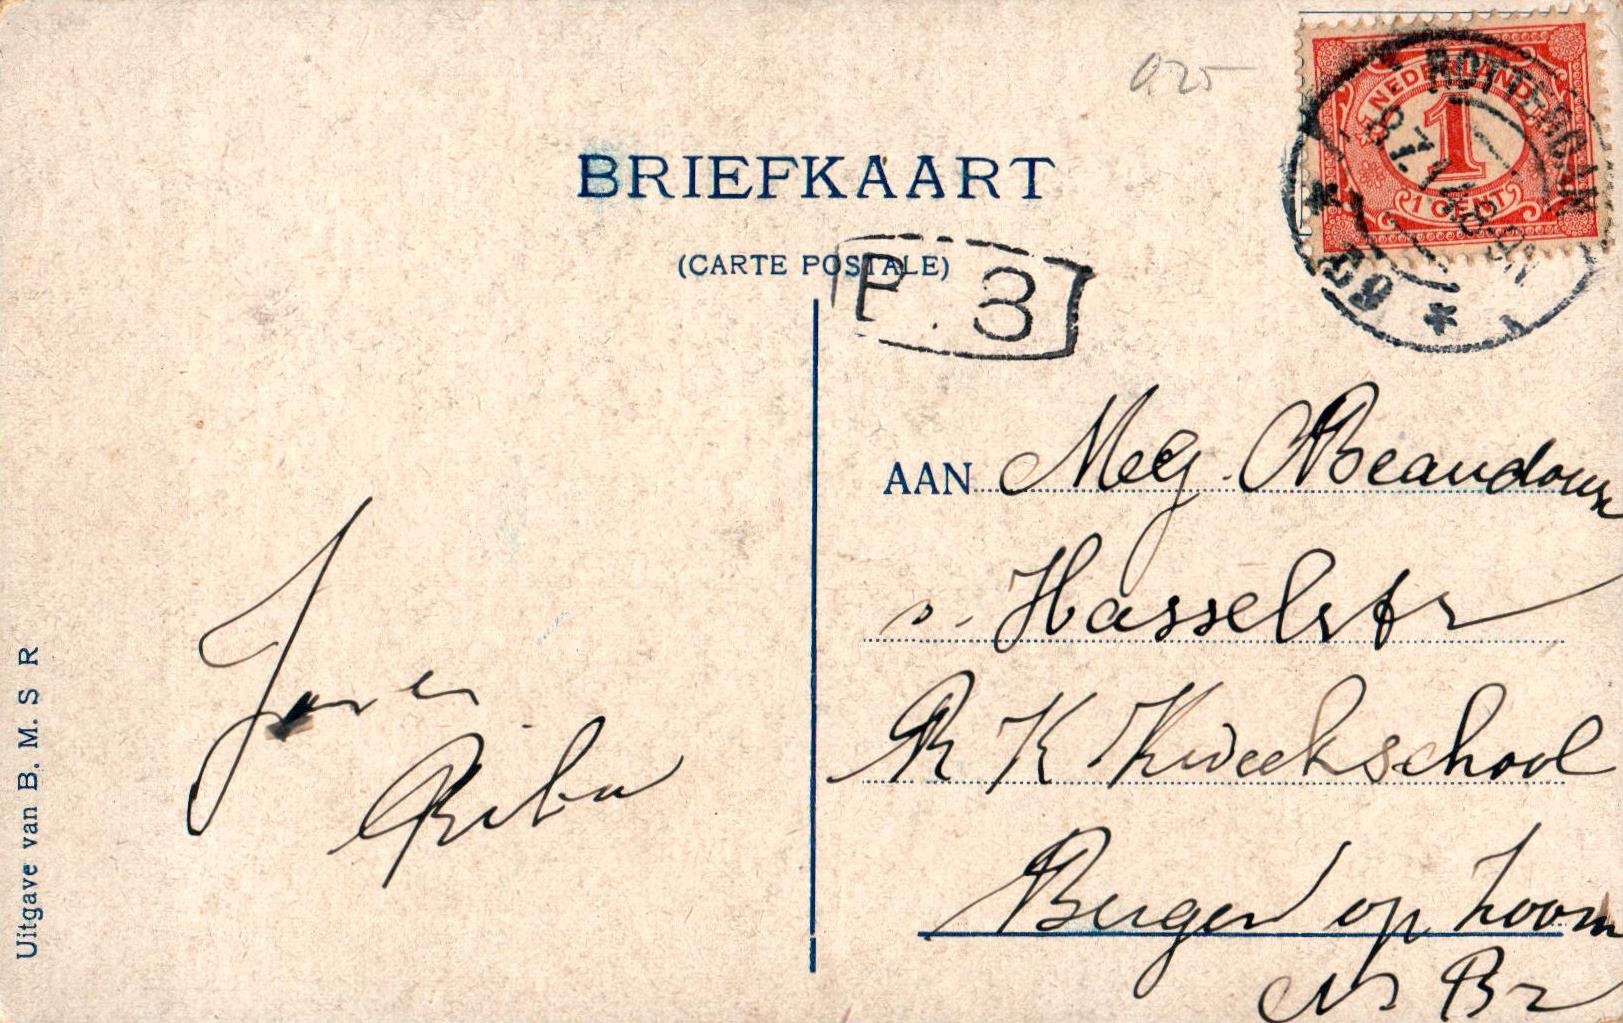 0.25
NEDERLAND
1
1 CENT
ROTTERDAM
BRIEFKAART
(CARTE POSTALE)
P. 3
AAN Mej. Beaudoux
v. Hasseltstr
R K Kweekschool
Bergen op Zoom
N Br
Uitgave van B. M. S R